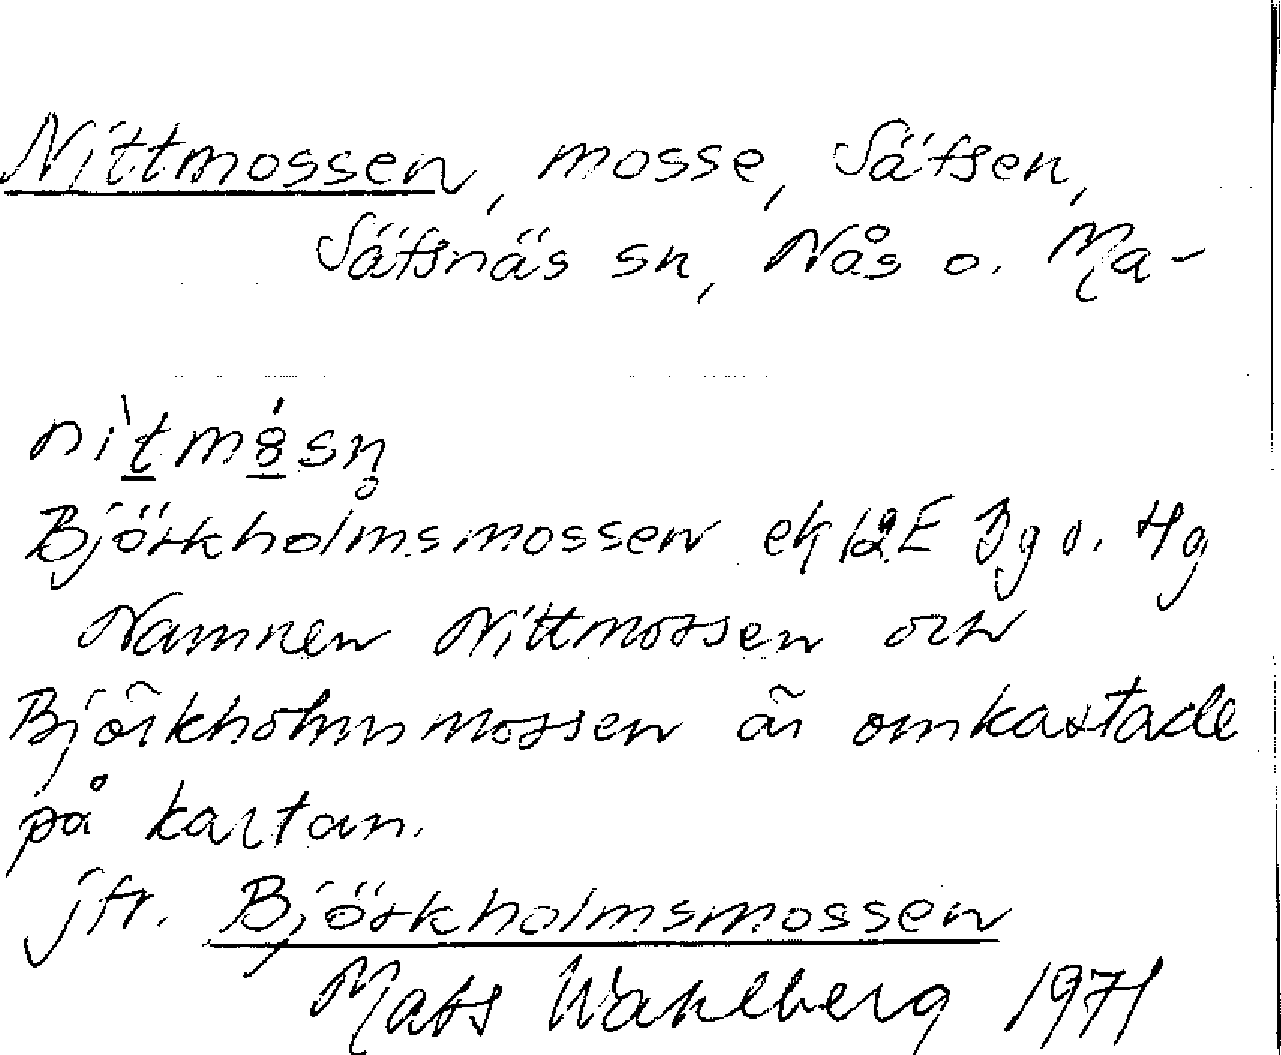 Nittmossen, mosse, Säfsen,
Säfsnäs sn, Nås o. Ma-
Björkholmsmossen ek 12E 3g o. 4g
Namnen Nittmossen och
Björkholmsmossen är omkastade
på kartan.
jfr. Björkholmsmossen
Mats Wahlberg 1971